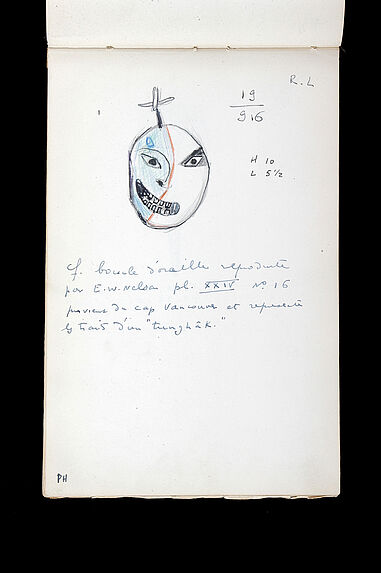 R.L
19
9.16
H 10
L 5½
cf. boucle d'oreille reproduite
par E.W. Nelson pl. XXIV No 16
provient du cap Vancouver et represente
les trait d'un "tunghâk."
PH